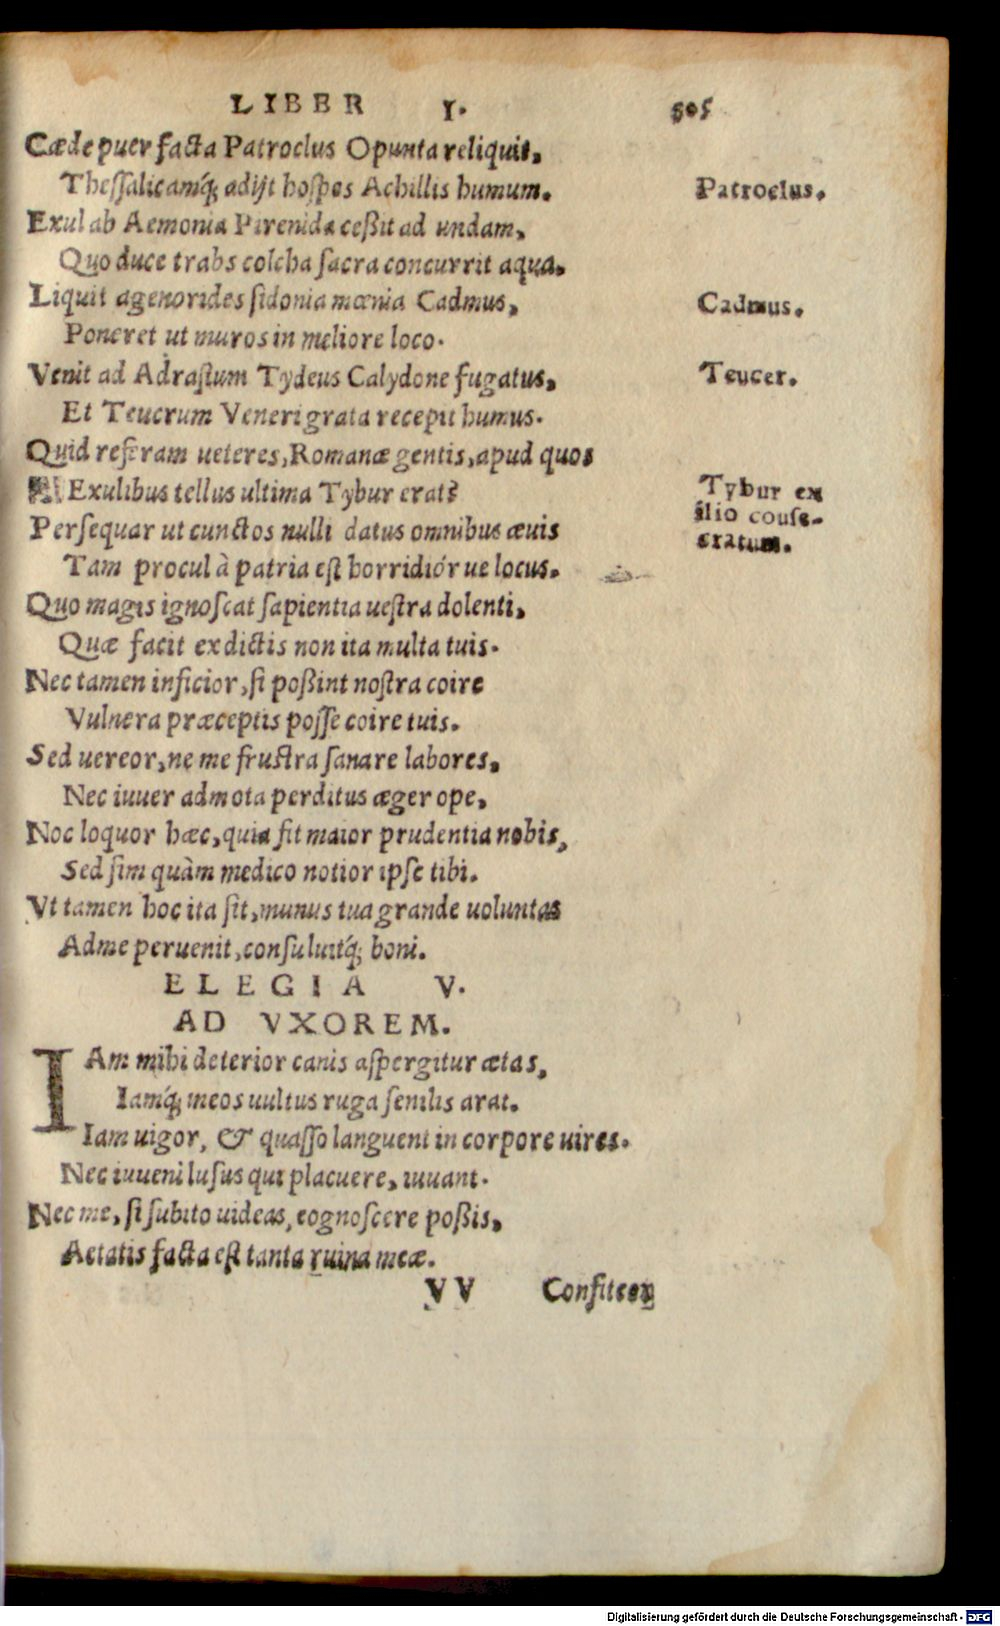 LIBER I. 505
Cæde puer facta Patroclus Opunta reliquit,
Theſſalicamq́; adijt hoſpes Achillis humum.
Patroclus.
Exul ab Aemonia Pirenida ceßit ad undam,
Quo duce trabs colcha ſacra concurrit aqua.
Liquit agenorides ſidonia mœnia Cadmus,
Cadmus.
Poneret ut muros in meliore loco.
Venit ad Adraſtum Tydeus Calydone fugatus,
Teucer.
Et Teucrum Veneri grata recepit humus.
Quid referam ueteres, Romanæ gentis, apud quos
Exulibus tellus ultima Tybur erat?
Tybur ex
ilio conſe-
cratum.
Perſequar ut cunctos nulli datus omnibus æuis
Tam procul à patria eſt horridiór ue locus.
Quo magis ignoſcat ſapientia ueſtra dolenti,
Quæ facit ex dictis non ita multa tuis.
Nec tamen inficior, ſi poßint noſtra coire
Vulnera præceptis poſſe coire tuis.
Sed uereor, ne me fruſtra ſanare labores,
Nec iuuer admota perditus æger ope,
Noc loquor hæc, quia ſit maior prudentia nobis,
Sed ſim quàm medico notior ipſe tibi.
Vt tamen hoc ita ſit, munus tua grande uoluntas
Ad me peruenit, conſuluitq́; boni.
ELEGIA V.
AD VXOREM.
IAm mihi deterior canis aſpergitur ætas,
Iamq́; meos uultus ruga ſenilis arat.
Iam uigor, & quaſſo languent in corpore uires.
Nec iuueni luſus qui placuere, iuuant.
Nec me, ſi ſubito uideas, cognoſcere poßis,
Aetatis facta eſt tanta ruina meæ.
VV Confiteor
Digitalisierung gefördert durch die Deutsche Forschungsgemeinschaft - DFG